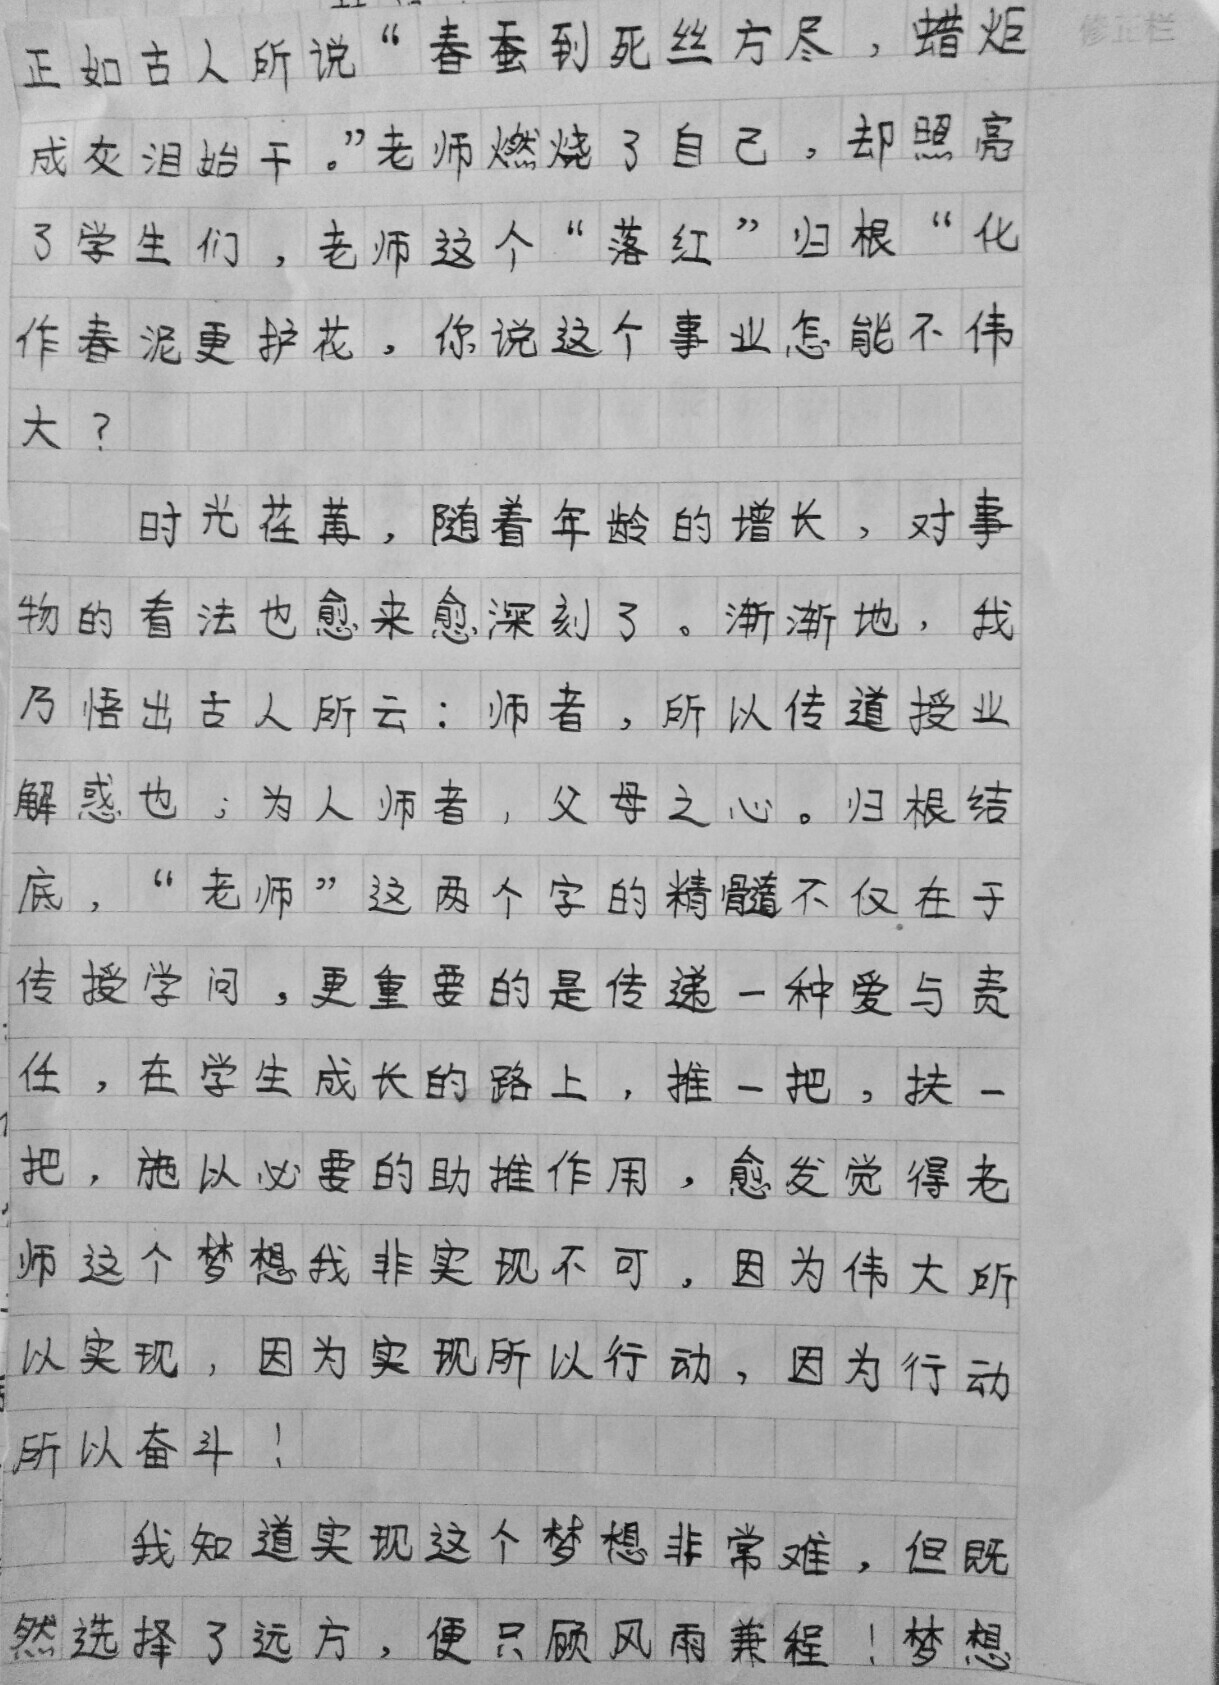 正如古人所说“春蚕到死丝方尽，蜡炬
修正栏
成灰泪始干。”老师燃烧了自己，却照亮
了学生们，老师这个“落红”归根“化
作春泥更护花，你说这个事业怎能不伟
大？
时光荏苒，随着年龄的增长，对事
物的看法也愈来愈深刻了。渐渐地，我
乃悟出古人所云：师者，所以传道授业
解惑也；为人师者，父母之心。归根结
底，“老师”这两个字的精髓不仅在于
传授学问，更重要的是传递一种爱与责
任，在学生成长的路上，推一把，扶一
把，施以必要的助推作用，愈发觉得老
师这个梦想我非实现不可，因为伟大所
以实现，因为实现所以行动，因为行动
所以奋斗！
我知道实现这个梦想非常难，但既
然选择了远方，便只顾风雨兼程！梦想